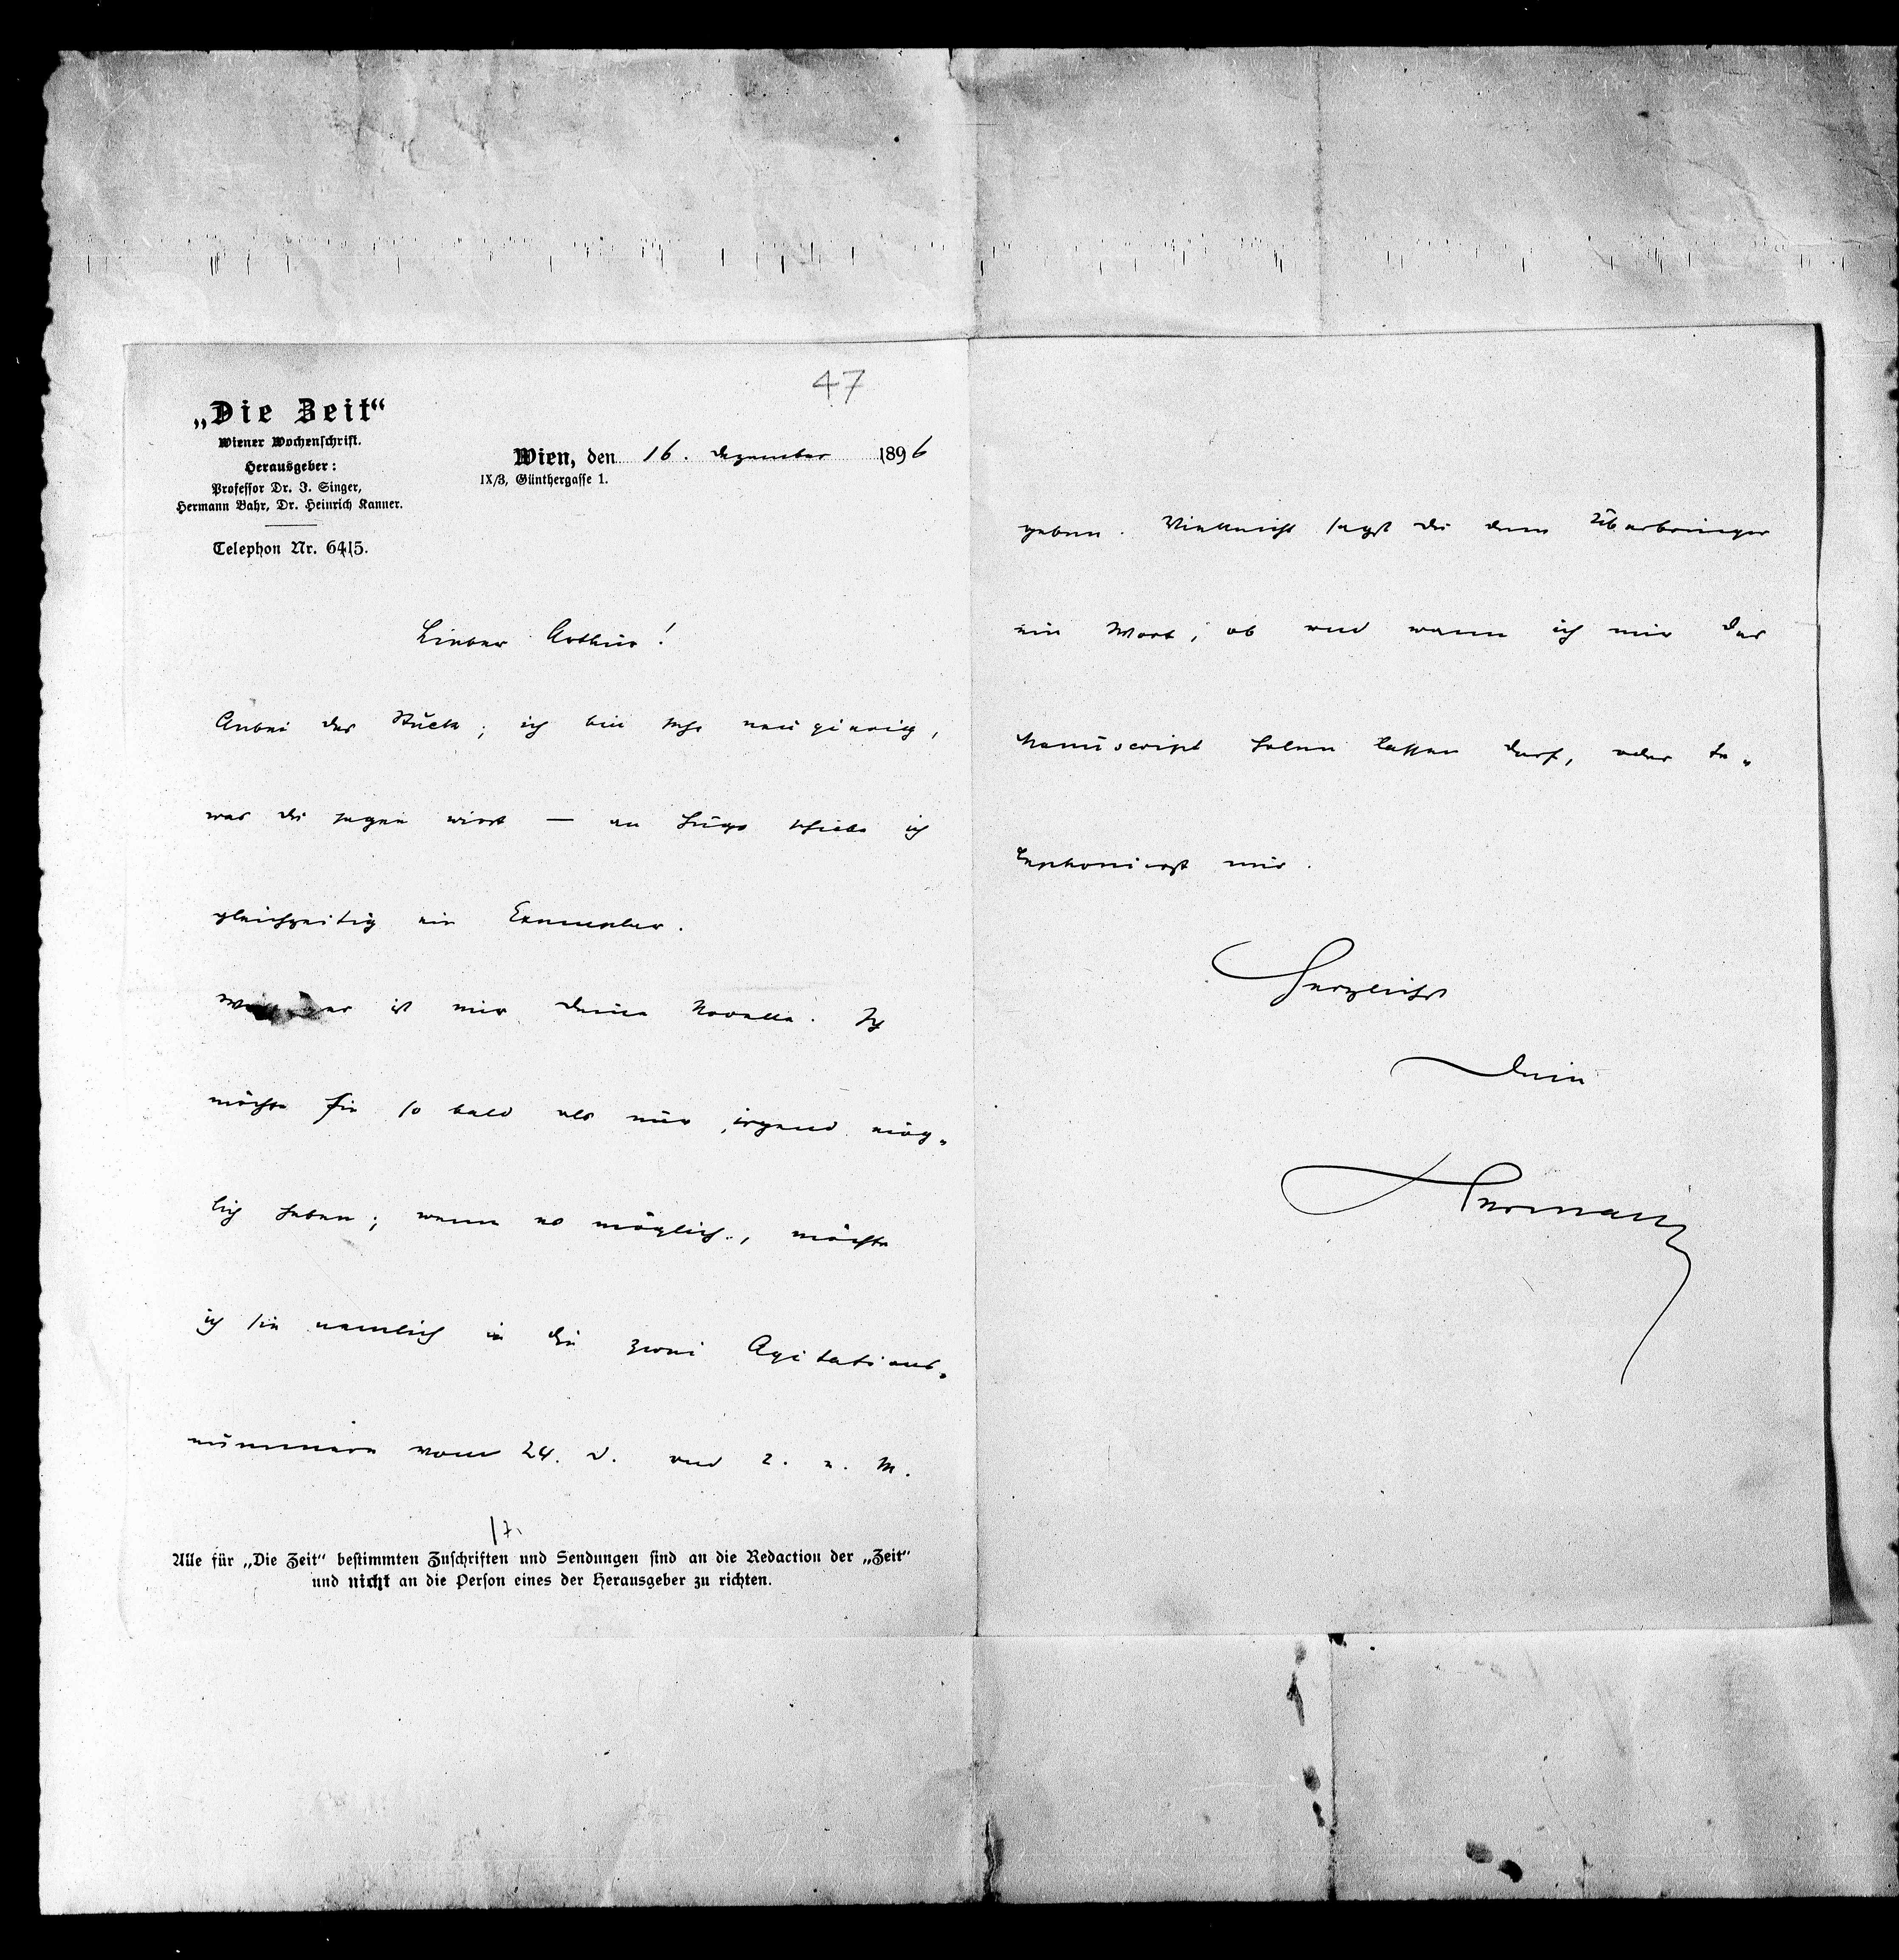 47
„Die Zeit“
Wiener Wochenschrift.
Herausgeber:
Professor Dr. I. Singer,
Hermann Bahr, Dr. Heinrich Kanner.
Telephon Nr. 6415.
Wien, den 16. Dezember 1896
IX/3, Günthergasse 1.
Lieber Arthur!
Anbei das Stück; ich bin sehr neugierig,
was Du sagen wirst — an Hugo schicke ich
gleichzeitig ein Exemplar.
ist mir Deine Novelle. Ich
möchte sie so bald als nur irgend mög-
lich haben; wenn es möglich, möchte
ich sie nemlich in die zwei Agitations-
nummern vom 24. d. und 2. n. M.
Alle für „Die Zeit“ bestimmten Zuschriften und Sendungen sind an die Redaction der „Zeit“
und nicht an die Person eines der Herausgeber zu richten.
geben. Vielleicht sagst Du dem Überbringer
ein Wort, ob und wann ich mir das
Manuscript holen lassen darf, oder te-
lephonierst mir.
Herzlichst
Dein
Hermann